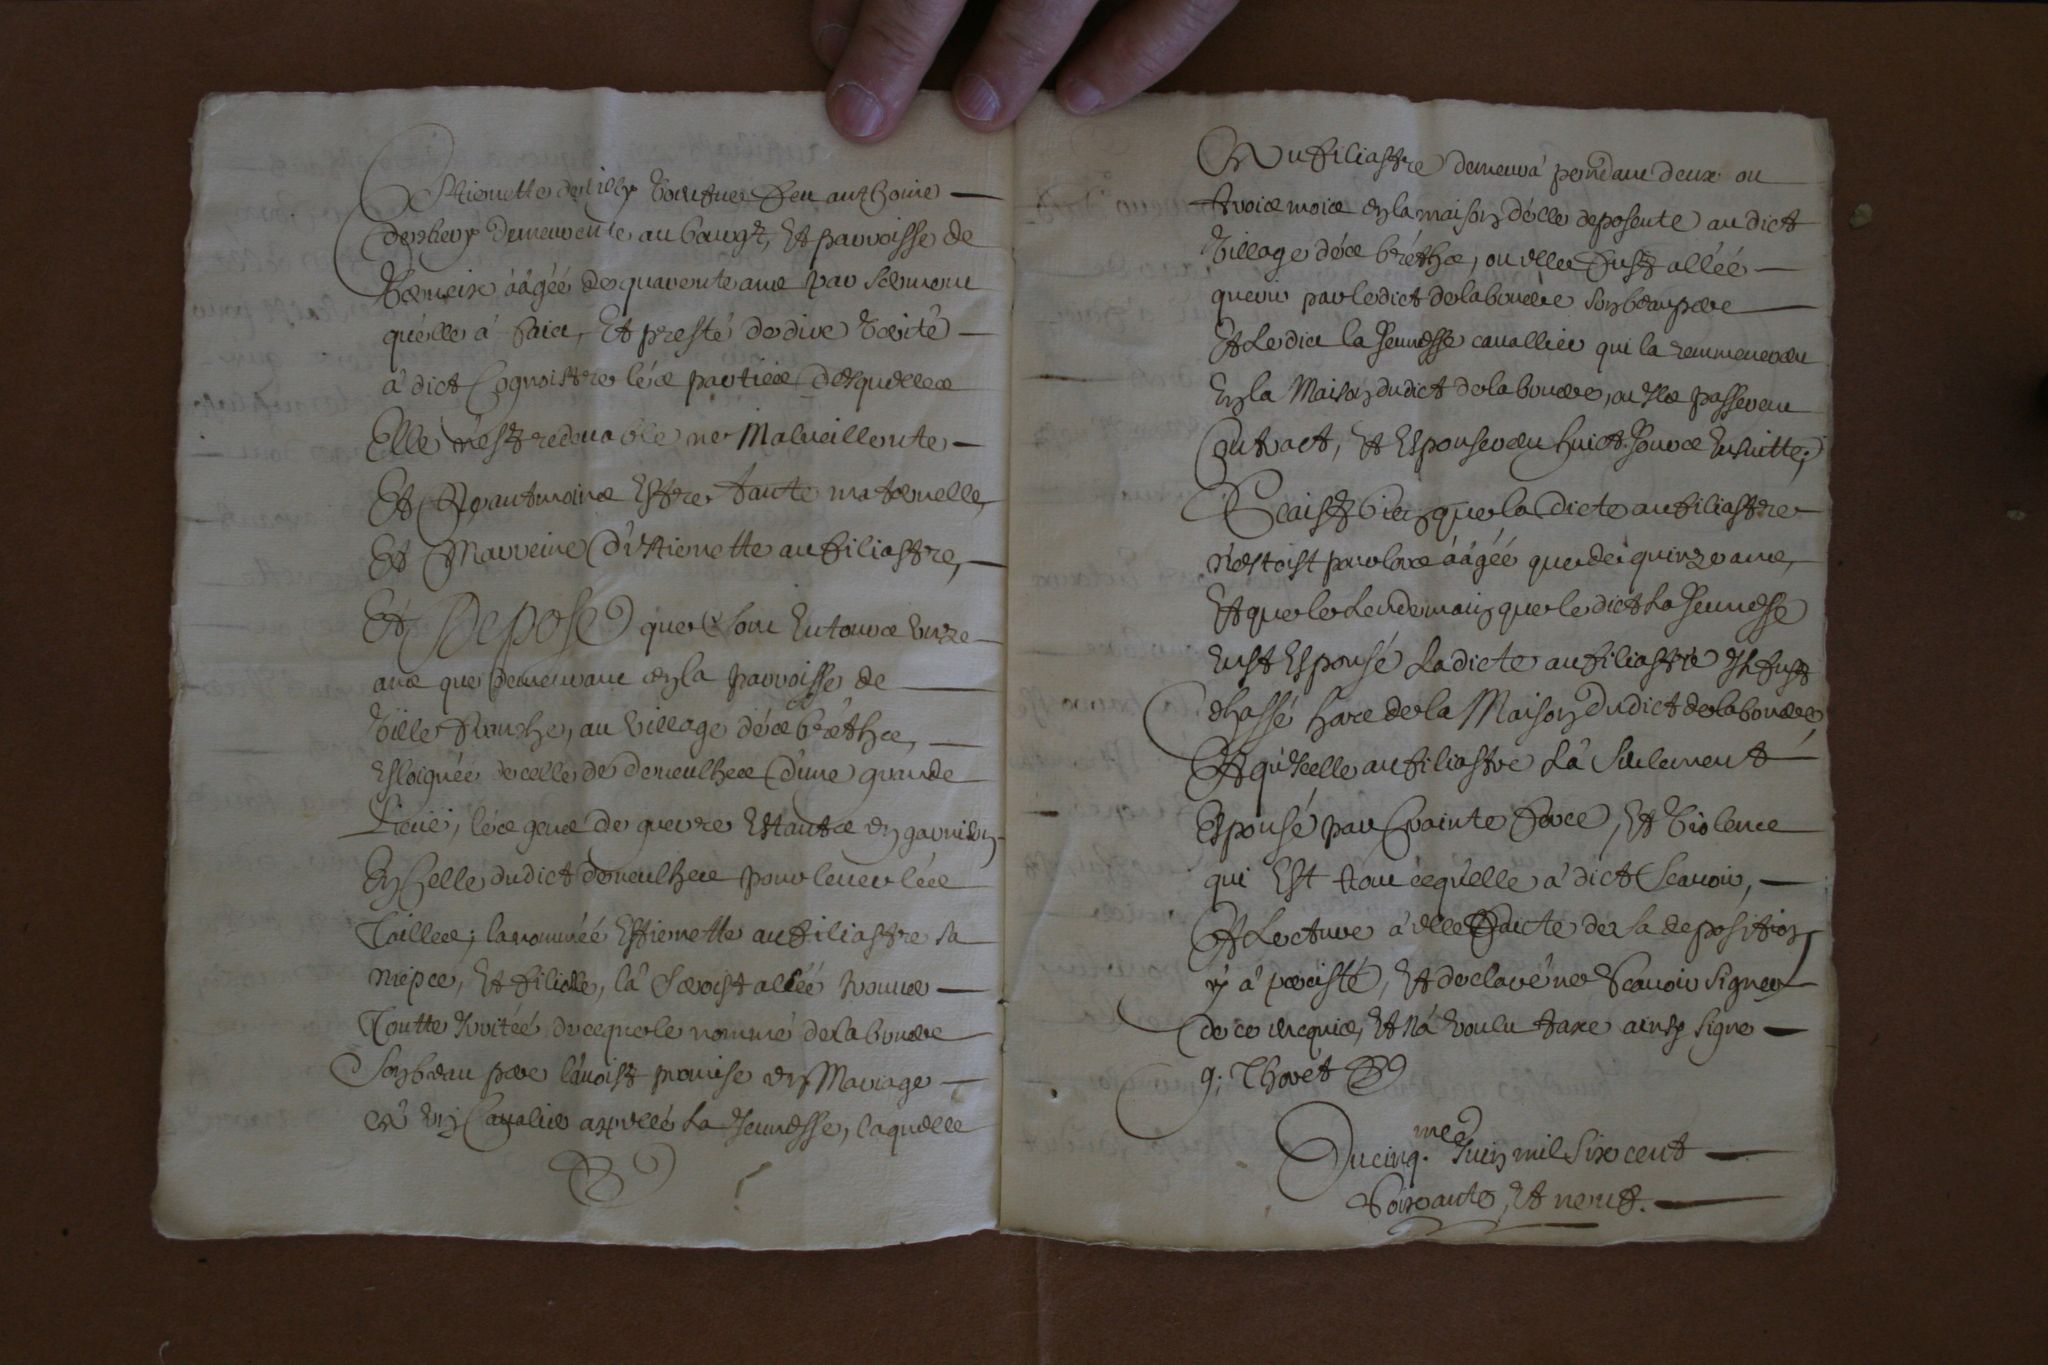 Estiennette de tilly Veufve Feu anthoine
demeurente au bourgt, Et parroisse de
ââgéé de quarente ans par serment
qu'elle â faict, Et presté de dire Verité
â dict Cognoistre léés parties Desquelles
Elle n'est redevable ne Malveillente
Et Neantmoins Estre tante maternelle,
Et Marreine D'Estienette aufiliastre,
Et Depose que Sont Entours unze
ans que Demeurant en la parroisse de
Villefranche, au Village dés bréthes,
Esloignée de celle de deneulhes d'une grande
Lieuë, léés gens de guerre Estants en garnison
En Celle dudict deneulhes pour lever léés
Tailles; la nommée Estienette aufiliastre sa
niepce, Et filiolle, lâ Seroist alléé trouver
Toutte Irritéé de ce que le nommé de la bouere
Son beau pere l'avoist promise en Mariage
â un Cavalier appellé La Jeunesse, laquelle
aufiliastre demeurâ pendant deux ou
trois mois en la maison d'elle deposente au dict
Village dés bréthes, ou elle Fust alléé
querir par le dict de la bouere son beau pere
Et Le dict la Jeunesse cavallier qui la remmenerent
En la Maison dudict de la bouere, ou Ils passerent
Contract, Et Espouserent huict Jours Ensuitte,
Scaist bien que la Dicte aufiliastre
n'estoist pour lors ââgéé que de quinze ans,
Et que le Lendemain que le dict La Jeunesse
Eust Espousé Ladicte aufiliastre Il fust
chassé hors de la Maison Dudict de la bouere,
Et qu'Icelle aufiliastre L'â Seulement
Espousé par Crainte force, Et Violence
qui Est tout ce qu'elle â dict Scavoir,
Et Lecture â elle Faicte de sa deposition
y â persisté, Et declaré ne Scavoir signer
de ce enquis, Et n'â voulu taxe ainsy signe
g; Thoret
Du cinq.me Juin mil Six cent
Soixante, Et neuf.